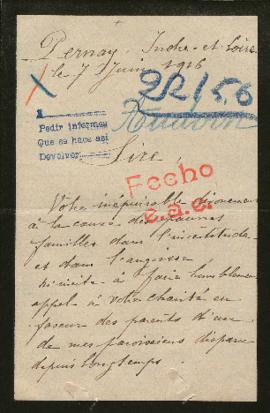 Pernay, Indre-et-Loire
le 7 Juin 1916
22/56
1
Pedir informes
Que se hace así
Devolver
Sire,
Fecho
e.a.c.
Votre inépuisable
à la cause des
familles dans l'incertitude
et dans l'angoisse
m'invite à faire humblement
appel à votre charité en
faveur des parents d'un
de mes paroissiens disparu
depuis longtemps.